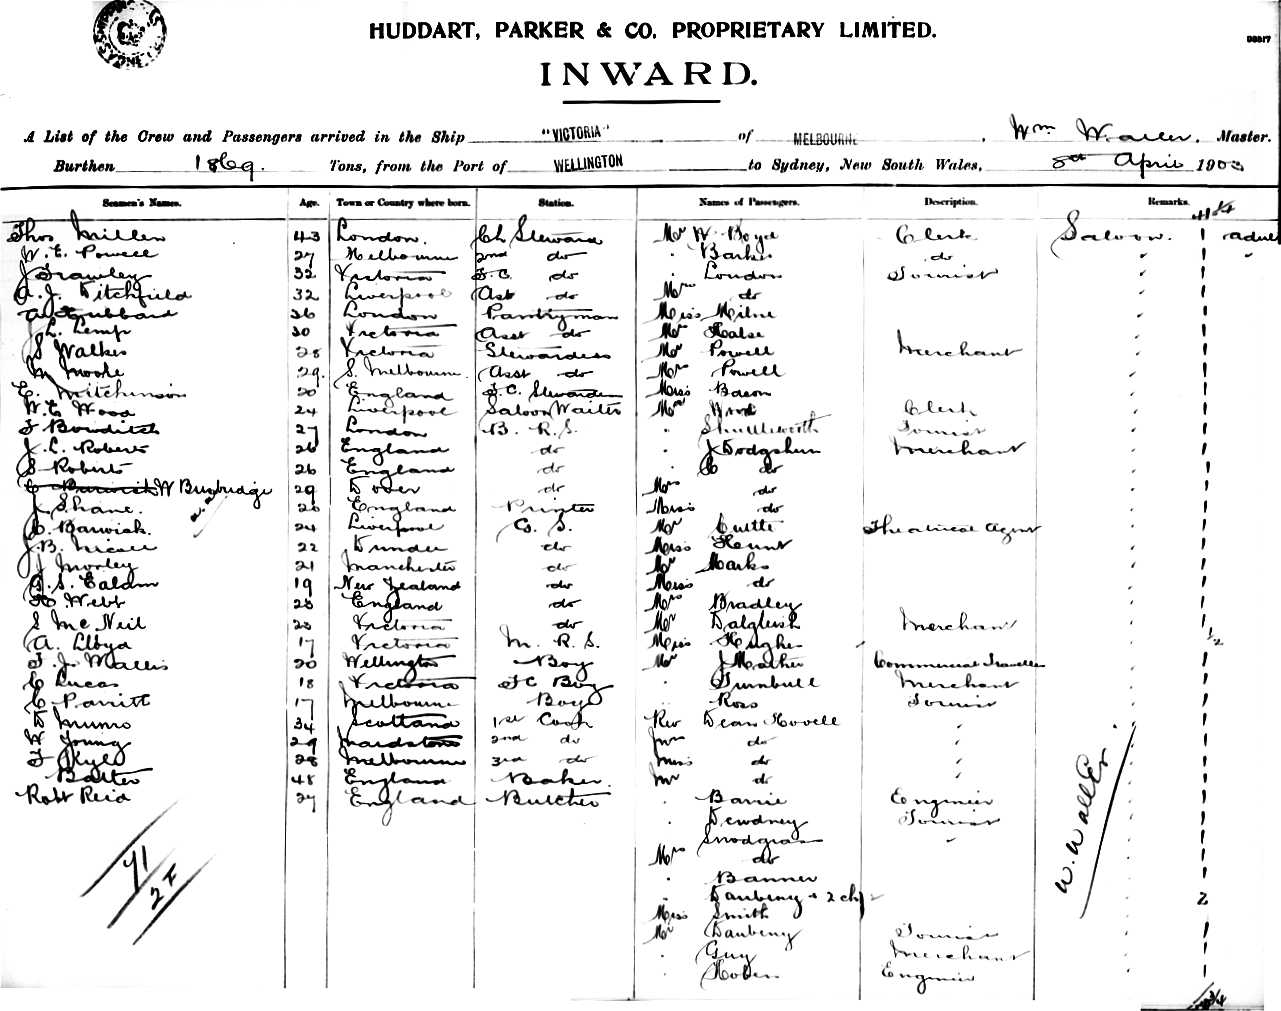 HUDDART, PARKER & CO. PROPRIETARY LIMITED.
INWARD.
A List of the Crew and Passengers arrived in the Ship "VICTORIA" of MELBOURNE, Wm Waller, Master.
Burthen 1869. Tons, from the Port of WELLINGTON to Sydney, New South Wales, 8th April 1903
Seamen's Names. Age. Town or Country where born. Station. Names of Passengers. Description. Remarks.
Thos Miller 43 London. Ch Steward Mr W. Boyd Clerk Saloon. 1 adult
W. E. Powell 27 Melbourne 2nd do " Barker do " 1 "
J Frawley 32 Victoria F. C. do " London Tourist " 1
A. J. Ditchfield 32 Liverpool Asst do Mrs do " 1
A Hubbard 26 London Pantryman Miss Milne " 1
J L. Kemp 30 Victoria Asst do Mr Halse " 1
S Walker 28 Victoria Stewardess Mr Powell Merchant " 1
M Moore 29. S. Melbourne Asst do Mrs Powell " 1
E. Mitchinson 20 England F. C. Steward Miss Bason " 1
W. E Wood 24 Liverpool Saloon Waiter Mr Clerk " 1
F Bowditch 27 London B. R. S. " Shuttleworth Tourist " 1
J. L. Roberts 26 England do " J Dodgshun Merchant " 1
S Roberts 26 England do " do " 1
C Barwick W Busbridge 29 Dover do Mrs do " 1
J Shane. England Printer Miss do " 1
C. Barwick. 24 Liverpool G. S. Mr Theatrical Agent " 1
J. B. Nicoll 22 Dundee do Miss Hunt " 1
J Morley 21 Manchester do Mr Marks " 1
G. S. Ealdm 19 New Zealand do Miss do " 1
H Webb 28 England do Mrs Bradley " 1
S McNeil Victoria do Mr Dalgleish Merchant " 1
A. Lloyd 17 Victoria M. R. S. Miss Hughes " 1/2
F. J. Wallis 20 Wellington Boy Mr J Mather Commercial Traveller " 1
C Lucas 18 Victoria F C Boy " Turnbull Merchant " 1
C Parritt 17 Melbourne Boy " Ross Tourist " 1
Munro 34 Scotland 1st Cook Rev Dean Hovell " " 1
Young 29 Maidstone 2nd do Mrs do " 1
F Kyle 28 Melbourne 3rd do Miss do " 1
Batter 48 England Baker Mr do " 1
Robt Reid 27 England Butcher " Barrie Engineer " 1
" Dewdney Tourist " 1
Snodgrass " " 1
Mrs do " 1
" Banner " 1
" Daubeny + 2 ch 2
Miss Smith
Mr Daubeny Tourist 1
" Guy Merchant " 1
" Hoben Engineer " 1
41
2 F
W. Waller